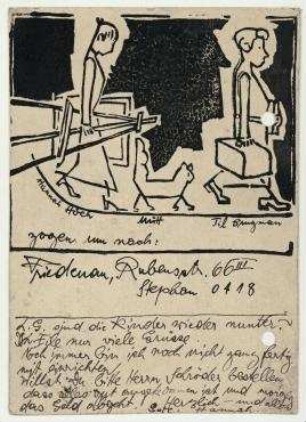 Hannah Höch
mitt
Til Brugman
zogen um nach:
Friedenau, Rubensstr. 66 III
Stephan 0418
L.G. sind die Kinder wieder munter?
In Eile nur viele Grüsse
Noch immer bin ich noch nicht ganz fertig
mit einrichten
Willst Du bitte Herrn Schröder bestellen
dass alles gut angekommen ist und morgen
das Geld abgeht. Herzlich
Hannah